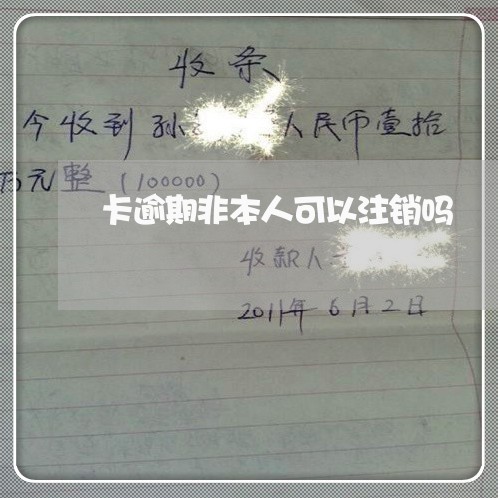 收条
今收到孙 人民币壹拾
万元整(100000)
卡逾期非本人可以注销吗
收款人
2011年6月2日